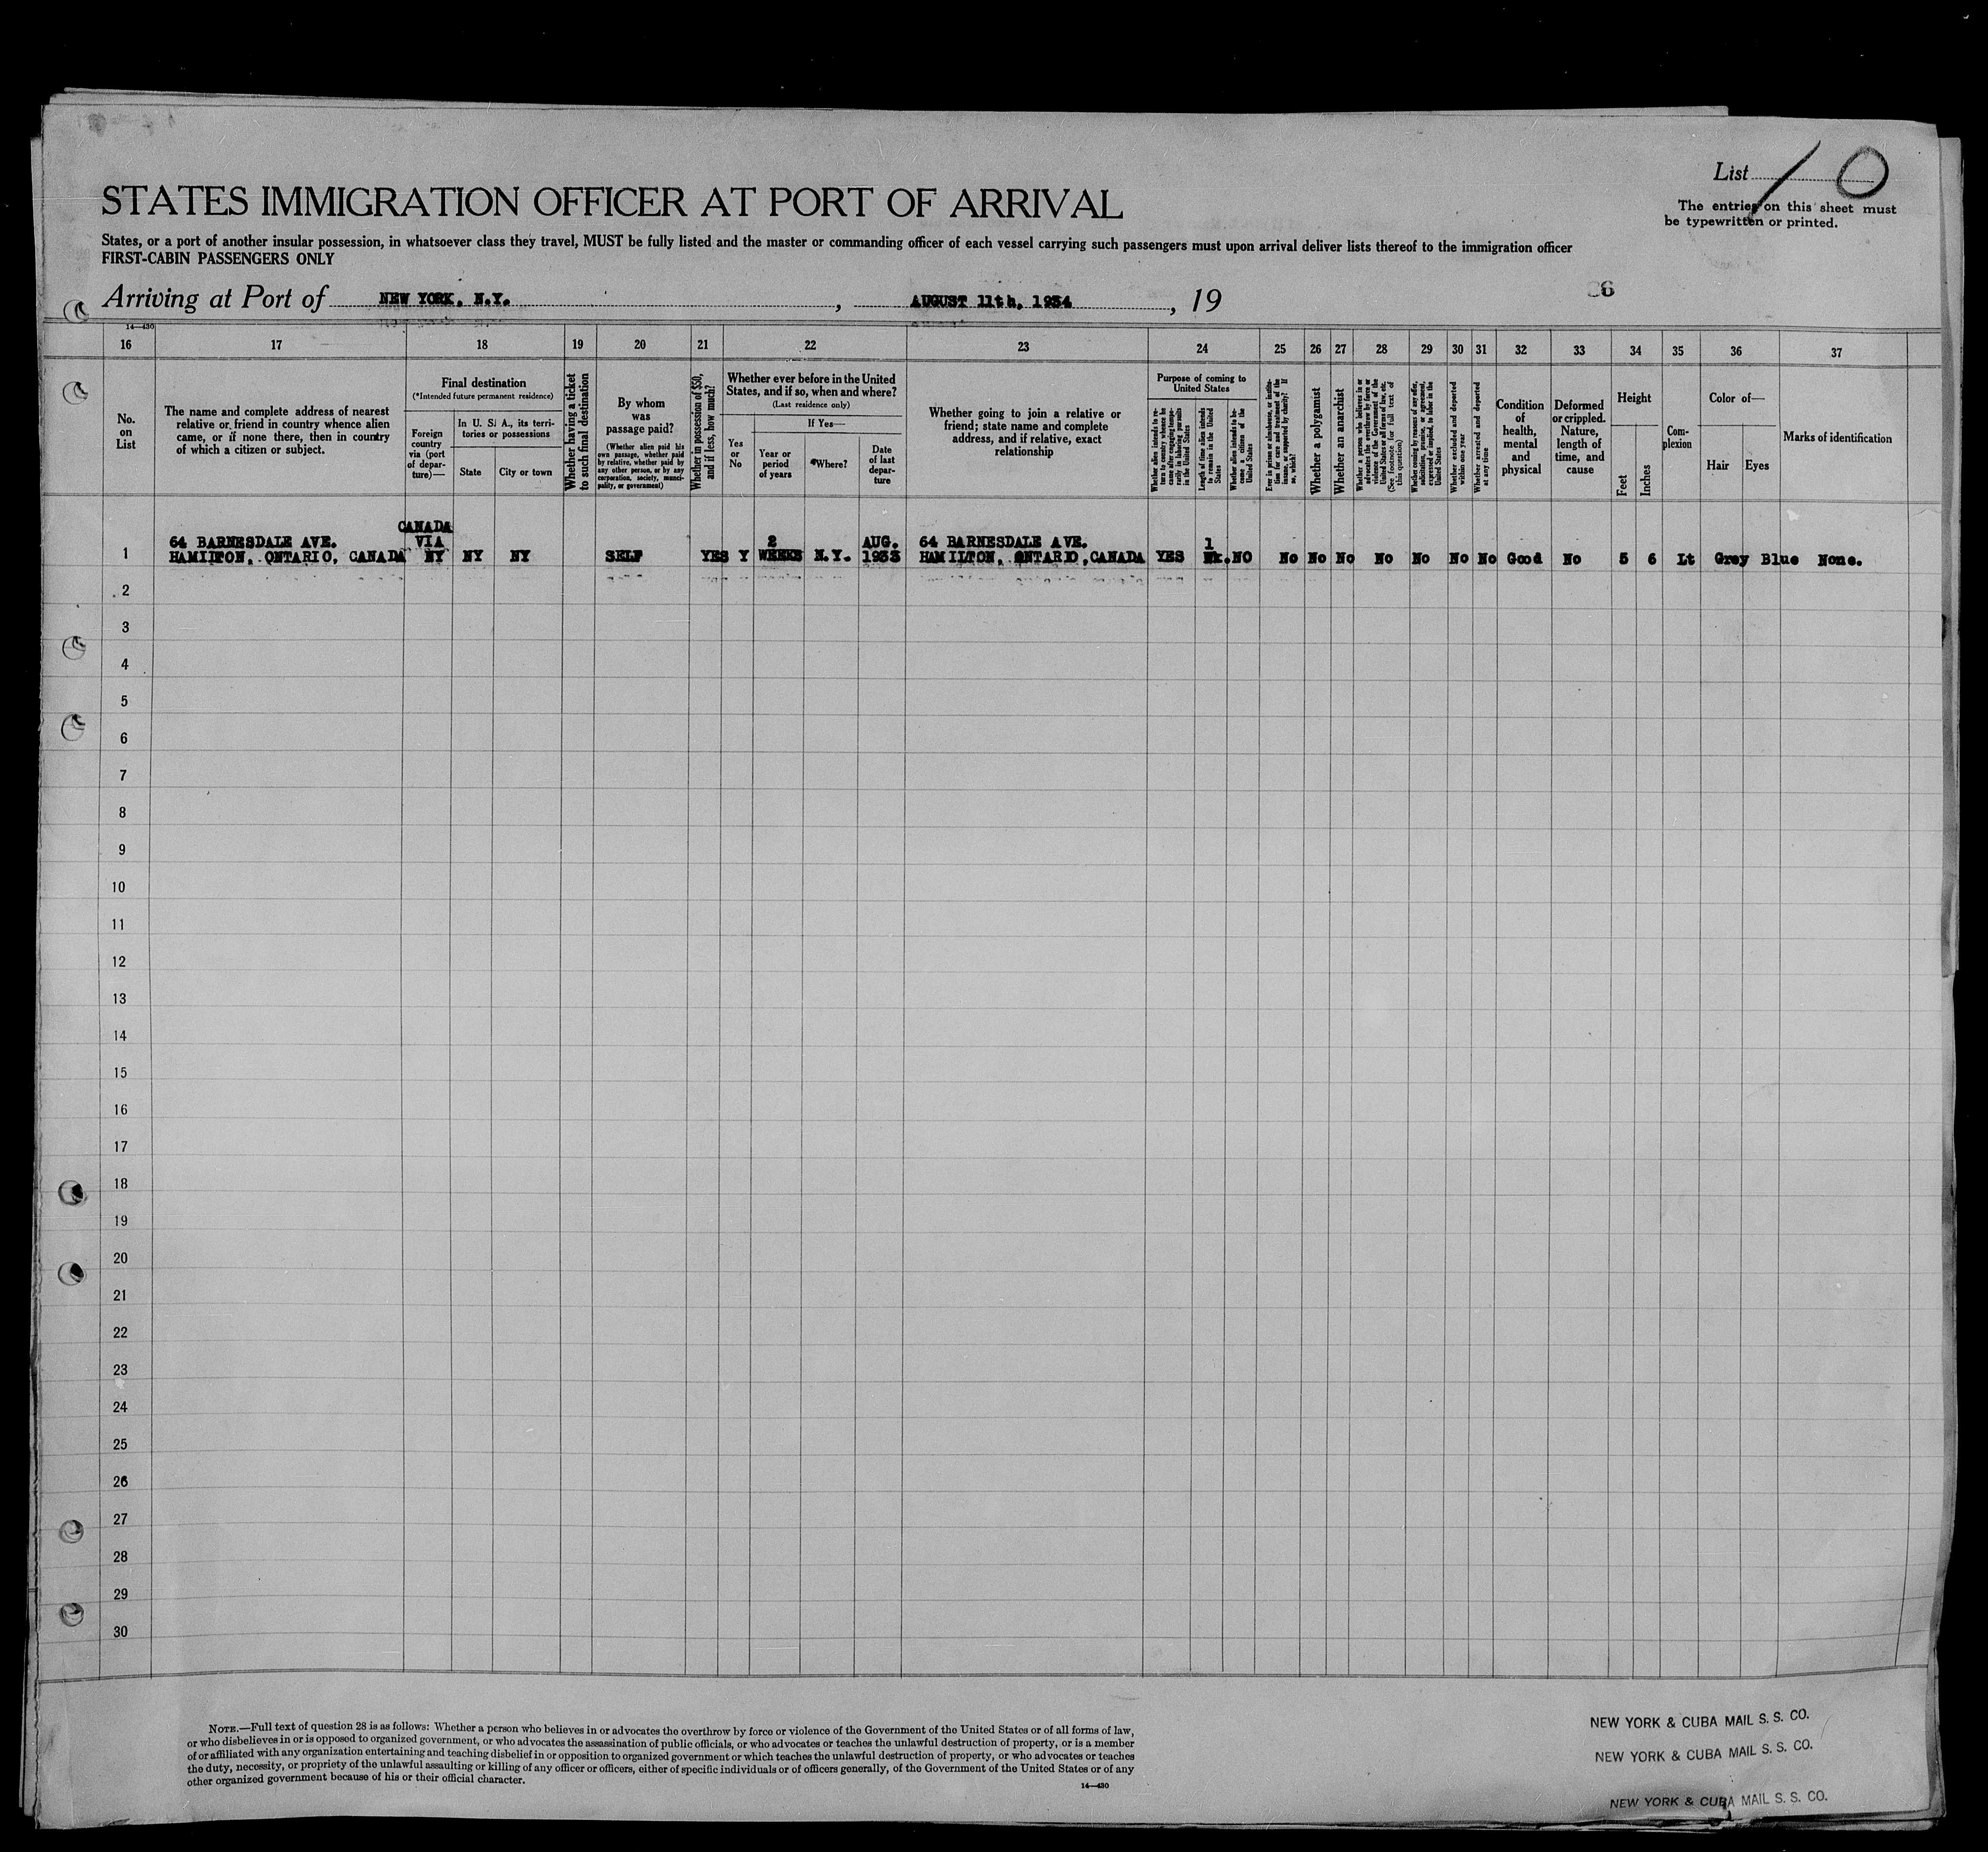 List 10
STATES IMMIGRATION OFFICER AT PORT OF ARRIVAL
The entries on this sheet must
be typewritten or printed.
States, or a port of another insular possession, in whatsoever class they travel, MUST be fully listed and the master or commanding officer of each vessel carrying such passengers must upon arrival deliver lists thereof to the immigration officer
FIRST-CABIN PASSENGERS ONLY
Arriving at Port of NEW YORK, N.Y. , AUGUST 11th, 1934 , 19
26
14—430
16 17 18 19 20 21 22 23 24 25 26 27 28 29 30 31 32 33 34 35 36 37
No.
on
List
The name and complete address of nearest
relative or friend in country whence alien
came, or if none there, then in country
of which a citizen or subject.
Final destination
(*Intended future permanent residence)
Foreign
country
via (port
of depar-
ture)—
In U. S. A., its terri-
tories or possessions
State
City or town
Whether having a ticket
to such final destination
By whom
was
passage paid?
(Whether alien paid his
own passage, whether paid
by relative, whether paid by
any other person, or by any
corporation, society, munici-
pality, or government)
Whether in possession of $50,
and if less, how much?
Whether ever before in the United
States, and if so, when and where?
(Last residence only)
If Yes—
Yes
or
No
Year or
period
of years
*Where?
Date
of last
depar-
ture
Whether going to join a relative or
friend; state name and complete
address, and if relative, exact
relationship
Purpose of coming to
United States
Whether alien intends to re-
turn to country whence he
came after engaging tempo-
rarily in laboring pursuits
in the United States
Length of time alien intends
to remain in the United
States
Whether alien intends to be-
come a citizen of the
United States
Ever in prison or almshouse, or institu-
tion for care and treatment of the
insane, or supported by charity? If
so, which?
Whether a polygamist
Whether an anarchist
Whether a person who believes in or
advocates the overthrow by force or
violence of the Government of the
United States or all forms of law, etc.
(See footnote for full text of
this question)
Whether coming by reasons of any offer,
solicitation, promise, or agreement,
expressed or implied, to labor in the
United States
Whether excluded and deported
within one year
Whether arrested and deported
at any time
Condition
of
health,
mental
and
physical
Deformed
or crippled.
Nature,
length of
time, and
cause
Height
Feet
Inches
Com-
plexion
Color of—
Hair
Eyes
Marks of identification
CANADA
64 BARNESDALE AVE. VIA 2 AUG. 64 BARNESDALE AVE. 1
1 HAMILTON, ONTARIO, CANADA NY NY NY SELF YES Y WEEKS N.Y. 1933 HAMILTON, ONTARIO,CANADA YES WK. NO No No No No No No No Good No 5 6 Lt Grey Blue None.
2
3
4
5
6
7
8
9
10
11
12
13
14
15
16
17
18
19
20
21
22
23
24
25
26
27
28
29
30
NOTE.—Full text of question 28 is as follows: Whether a person who believes in or advocates the overthrow by force or violence of the Government of the United States or of all forms of law,
or who disbelieves in or is opposed to organized government, or who advocates the assassination of public officials, or who advocates or teaches the unlawful destruction of property, or is a member
of or affiliated with any organization entertaining and teaching disbelief in or opposition to organized government or which teaches the unlawful destruction of property, or who advocates or teaches
the duty, necessity, or propriety of the unlawful assaulting or killing of any officer or officers, either of specific individuals or of officers generally, of the Government of the United States or of any
other organized government because of his or their official character.
14—430
NEW YORK & CUBA MAIL S. S. CO.
NEW YORK & CUBA MAIL S. S. CO.
NEW YORK & CUBA MAIL S. S. CO.